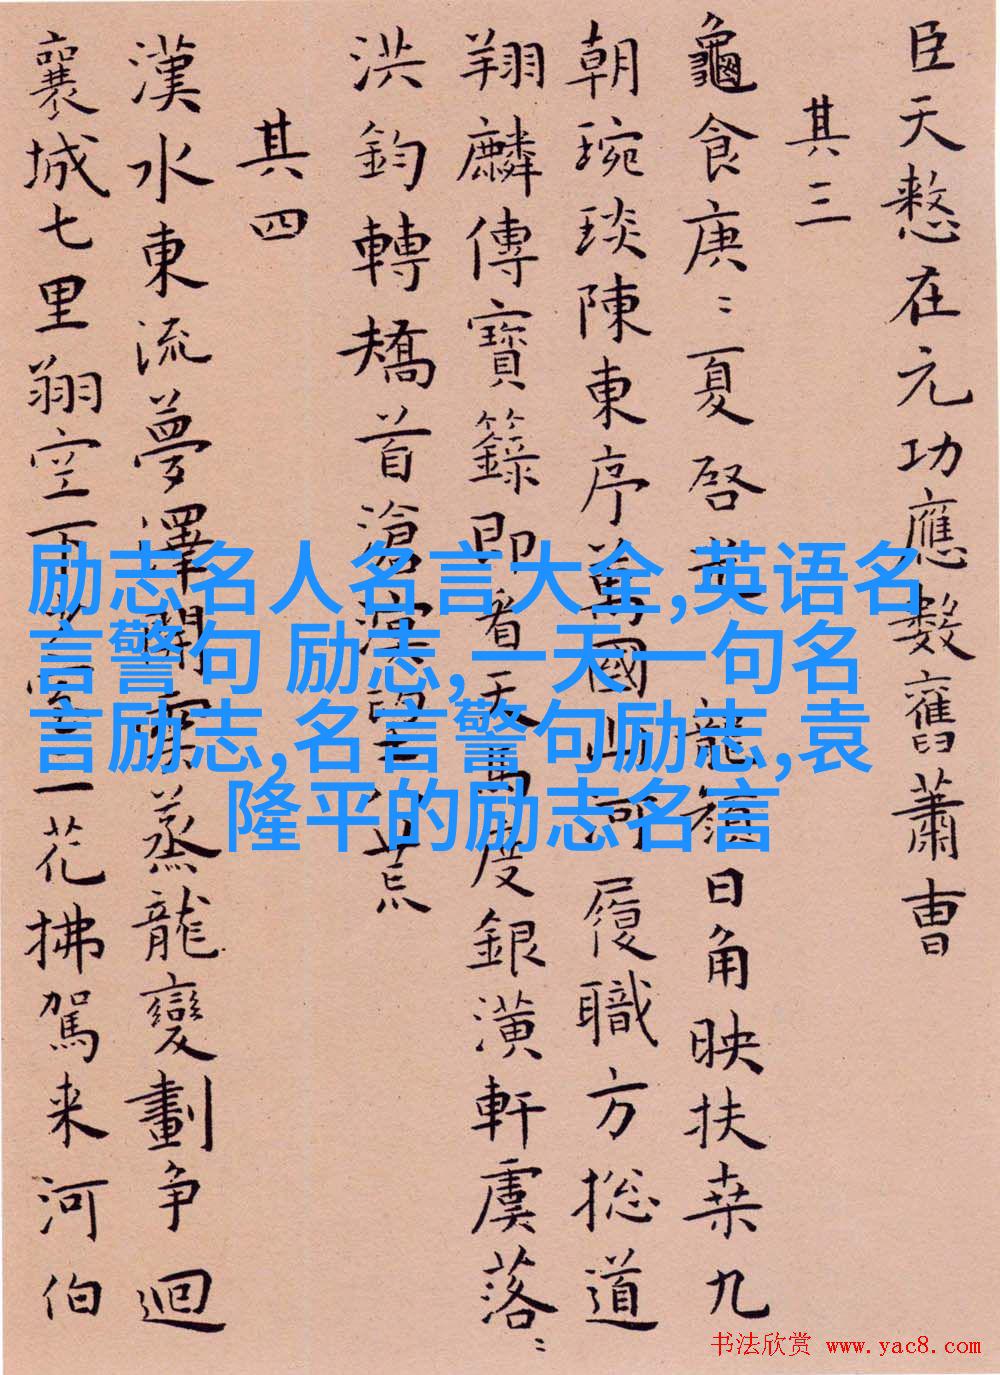 臣天憗在元功應數舊蕭曹
其三
龜食庚〻夏啓龍顔日角映扶桒九
朝琬琰陳東序萬國山河履職方捴道
翔麟傳寶籙即看天馬度銀潢軒虞落〻
洪鈞轉矯首滄溟八荒
其四
漢水東流夢澤開雲蒸龍變劃争迴
襄城七里翔空下一花拂駕来河伯
励志名人名言大全,英语名
言警句 励志,一天一句名
言励志,名言警句励志,袁
隆平的励志名言
书法欣赏 www.yac8.com